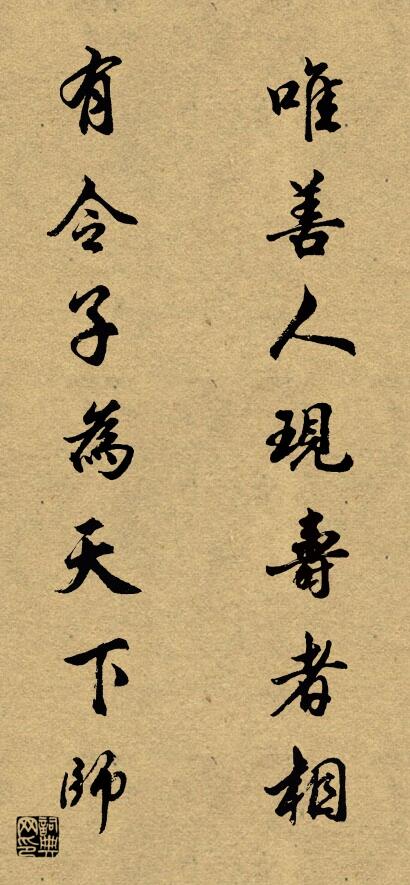 唯善人現壽者相
有令子為天下師
詞典网印